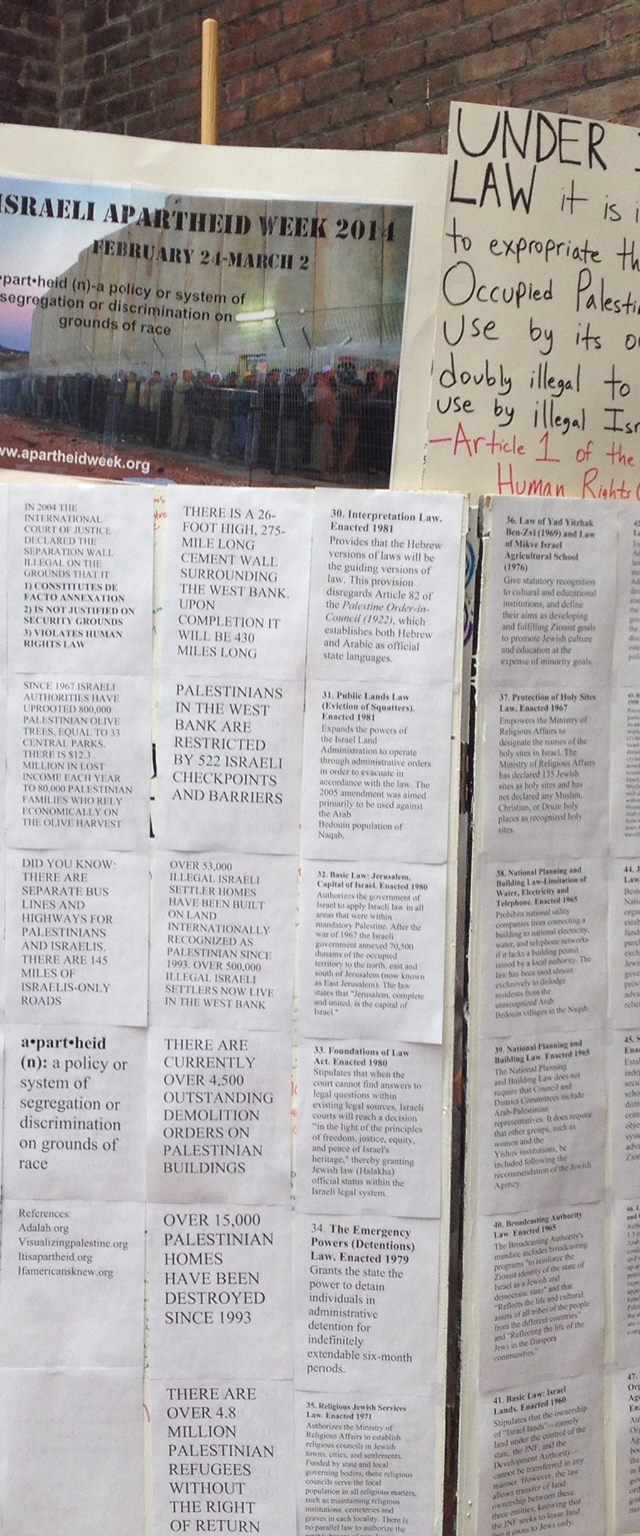 ISRAELI APARTHEID WEEK 2014
FEBRUARY 24-MARCH 2
part•heid (n)-a policy or system of
segregation or discrimination on
grounds of race
ww.apartheidweek.org
UNDER
LAW it is i
to expropriate th
Occupied Palesti
use by its o
doubly illegal to
use by illegal Isr
-Article 1 of the
Human Rights
IN 2004 THE
INTERNATIONAL
COURT OF JUSTICE
DECLARED THE
SEPARATION WALL
ILLEGAL ON THE
GROUNDS THAT IT
1) CONSTITUTES DE
FACTO ANNEXATION
2) IS NOT JUSTIFIED ON
SECURITY GROUNDS
3) VIOLATES HUMAN
RIGHTS LAW
SINCE 1967 ISRAELI
AUTHORITIES HAVE
UPROOTED 800,000
PALESTINIAN OLIVE
TREES, EQUAL TO 33
CENTRAL PARKS.
THERE IS $12.3
MILLION IN LOST
INCOME EACH YEAR
TO 80,000 PALESTINIAN
FAMILIES WHO RELY
ECONOMICALLY ON
THE OLIVE HARVEST
DID YOU KNOW:
THERE ARE
SEPARATE BUS
LINES AND
HIGHWAYS FOR
PALESTINIANS
AND ISRAELIS.
THERE ARE 145
MILES OF
ISRAELIS-ONLY
ROADS
a•part•heid
(n): a policy or
system of
segregation or
discrimination
on grounds of
race
References:
Adalah.org
Visualizingpalestine.org
Itisapartheid.org
Ifamericansknew.org
THERE IS A 26-
FOOT HIGH, 275-
MILE LONG
CEMENT WALL
SURROUNDING
THE WEST BANK.
UPON
COMPLETION IT
WILL BE 430
MILES LONG
PALESTINIANS
IN THE WEST
BANK ARE
RESTRICTED
BY 522 ISRAELI
CHECKPOINTS
AND BARRIERS
OVER 53,000
ILLEGAL ISRAELI
SETTLER HOMES
HAVE BEEN BUILT
ON LAND
INTERNATIONALLY
RECOGNIZED AS
PALESTINIAN SINCE
1993. OVER 500,000
ILLEGAL ISRAELI
SETTLERS NOW LIVE
IN THE WEST BANK
THERE ARE
CURRENTLY
OVER 4,500
OUTSTANDING
DEMOLITION
ORDERS ON
PALESTINIAN
BUILDINGS
OVER 15,000
PALESTINIAN
HOMES
HAVE BEEN
DESTROYED
SINCE 1993
THERE ARE
OVER 4.8
MILLION
PALESTINIAN
REFUGEES
WITHOUT
THE RIGHT
OF RETURN
30. Interpretation Law.
Enacted 1981
Provides that the Hebrew
versions of laws will be
the guiding versions of
law. This provision
disregards Article 82 of
the Palestine Order-in-
Council (1922), which
establishes both Hebrew
and Arabic as official
state languages.
31. Public Lands Law
(Eviction of Squatters).
Enacted 1981
Expands the powers of
the Israel Land
Administration to operate
through administrative orders
in order to evacuate in
accordance with the law. The
2005 amendment was aimed
primarily to be used against
the Arab
Bedouin population of
Naqab.
32. Basic Law: Jerusalem,
Capital of Israel. Enacted 1980
Authorizes the government of
Israel to apply Israeli law in all
areas that were within
mandatory Palestine. After the
war of 1967 the Israeli
government annexed 70,500
dunams of the occupied
territory to the north, east and
south of Jerusalem (now known
as East Jerusalem). The law
states that "Jerusalem, complete
and united, is the capital of
Israel."
33. Foundations of Law
Act. Enacted 1980
Stipulates that when the
court cannot find answers to
legal questions within
existing legal sources, Israeli
courts will reach a decision
"in the light of the principles
of freedom, justice, equity,
and peace of Israel's
heritage," thereby granting
Jewish law (Halakha)
official status within the
Israeli legal system.
34. The Emergency
Powers (Detentions)
Law. Enacted 1979
Grants the state the
power to detain
individuals in
administrative
detention for
indefinitely
extendable six-month
periods.
35. Religious Jewish Services
Law. Enacted 1971
Authorizes the Ministry of
Religious Affairs to establish
religious councils in Jewish
towns, cities, and settlements.
Funded by state and local
governing bodies, these religious
councils serve the local
population in all religious matters,
such as maintaining religious
institutions, cemeteries and
graves in each locality. There is
no parallel law to authorize the
36. Law of Yad Yitzhak
Ben-Zvi (1969) and Law
of Mikve Israel
Agricultural School
(1976)
Give statutory recognition
to cultural and educational
institutions, and define
their aims as developing
and fulfilling Zionist goals
to promote Jewish culture
and education at the
expense of minority goals.
37. Protection of Holy Sites
Law. Enacted 1967
Empowers the Ministry of
Religious Affairs to
designate the names of the
holy sites in Israel. The
Ministry of Religious Affairs
has declared 135 Jewish
sites as holy sites and has
not declared any Muslim,
Christian, or Druze holy
places as recognized holy
sites.
38. National Planning and
Building Law-Limitation of
Water, Electricity and
Telephone. Enacted 1965
Prohibits national utility
companies from connecting a
building to national electricity,
water, and telephone networks
if it lacks a building permit
issued by a local authority. The
law has been used almost
exclusively to dislodge
residents from the
unrecognized Arab
Bedouin villages in the Naqab
39. National Planning and
Building Law. Enacted 1965
The National Planning
and Building Law does not
require that Council and
District Committees include
Arab-Palestinian
representatives. It does require
that other groups, such as
women and the
Yishuv institutions, be
included following the
recommendation of the Jewish
Agency.
40. Broadcasting Authority
Law. Enacted 1965
The Broadcasting Authority's
mandate includes broadcasting
programs "to reinforce the
Zionist identity of the state of
Israel as a Jewish and
democratic state" and that
"Reflects the life and cultural
assets of all tribes of the people
from the different countries"
and "Reflecting the life of the
Jews in the Diaspora
communities."
41. Basic Law: Israel
Lands. Enacted 1960
Stipulates that the ownership
of "Israel lands"—namely
land under the control of the
state, the JNF, and the
Development Authority—
cannot be transferred in any
manner. However, the law
allows transfer of land
ownership between these
three entities, knowing that
the JNF seeks to lease land